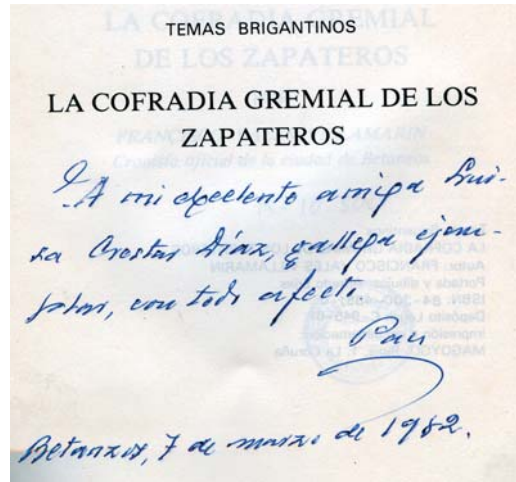 TEMAS BRIGANTINOS
LA COFRADIA GREMIAL DE LOS
ZAPATEROS
A mi excelente amiga Lui-
sa Díaz, gallega ejem-
plar, con todo afecto
Betanzos, 7 de marzo de 1982.